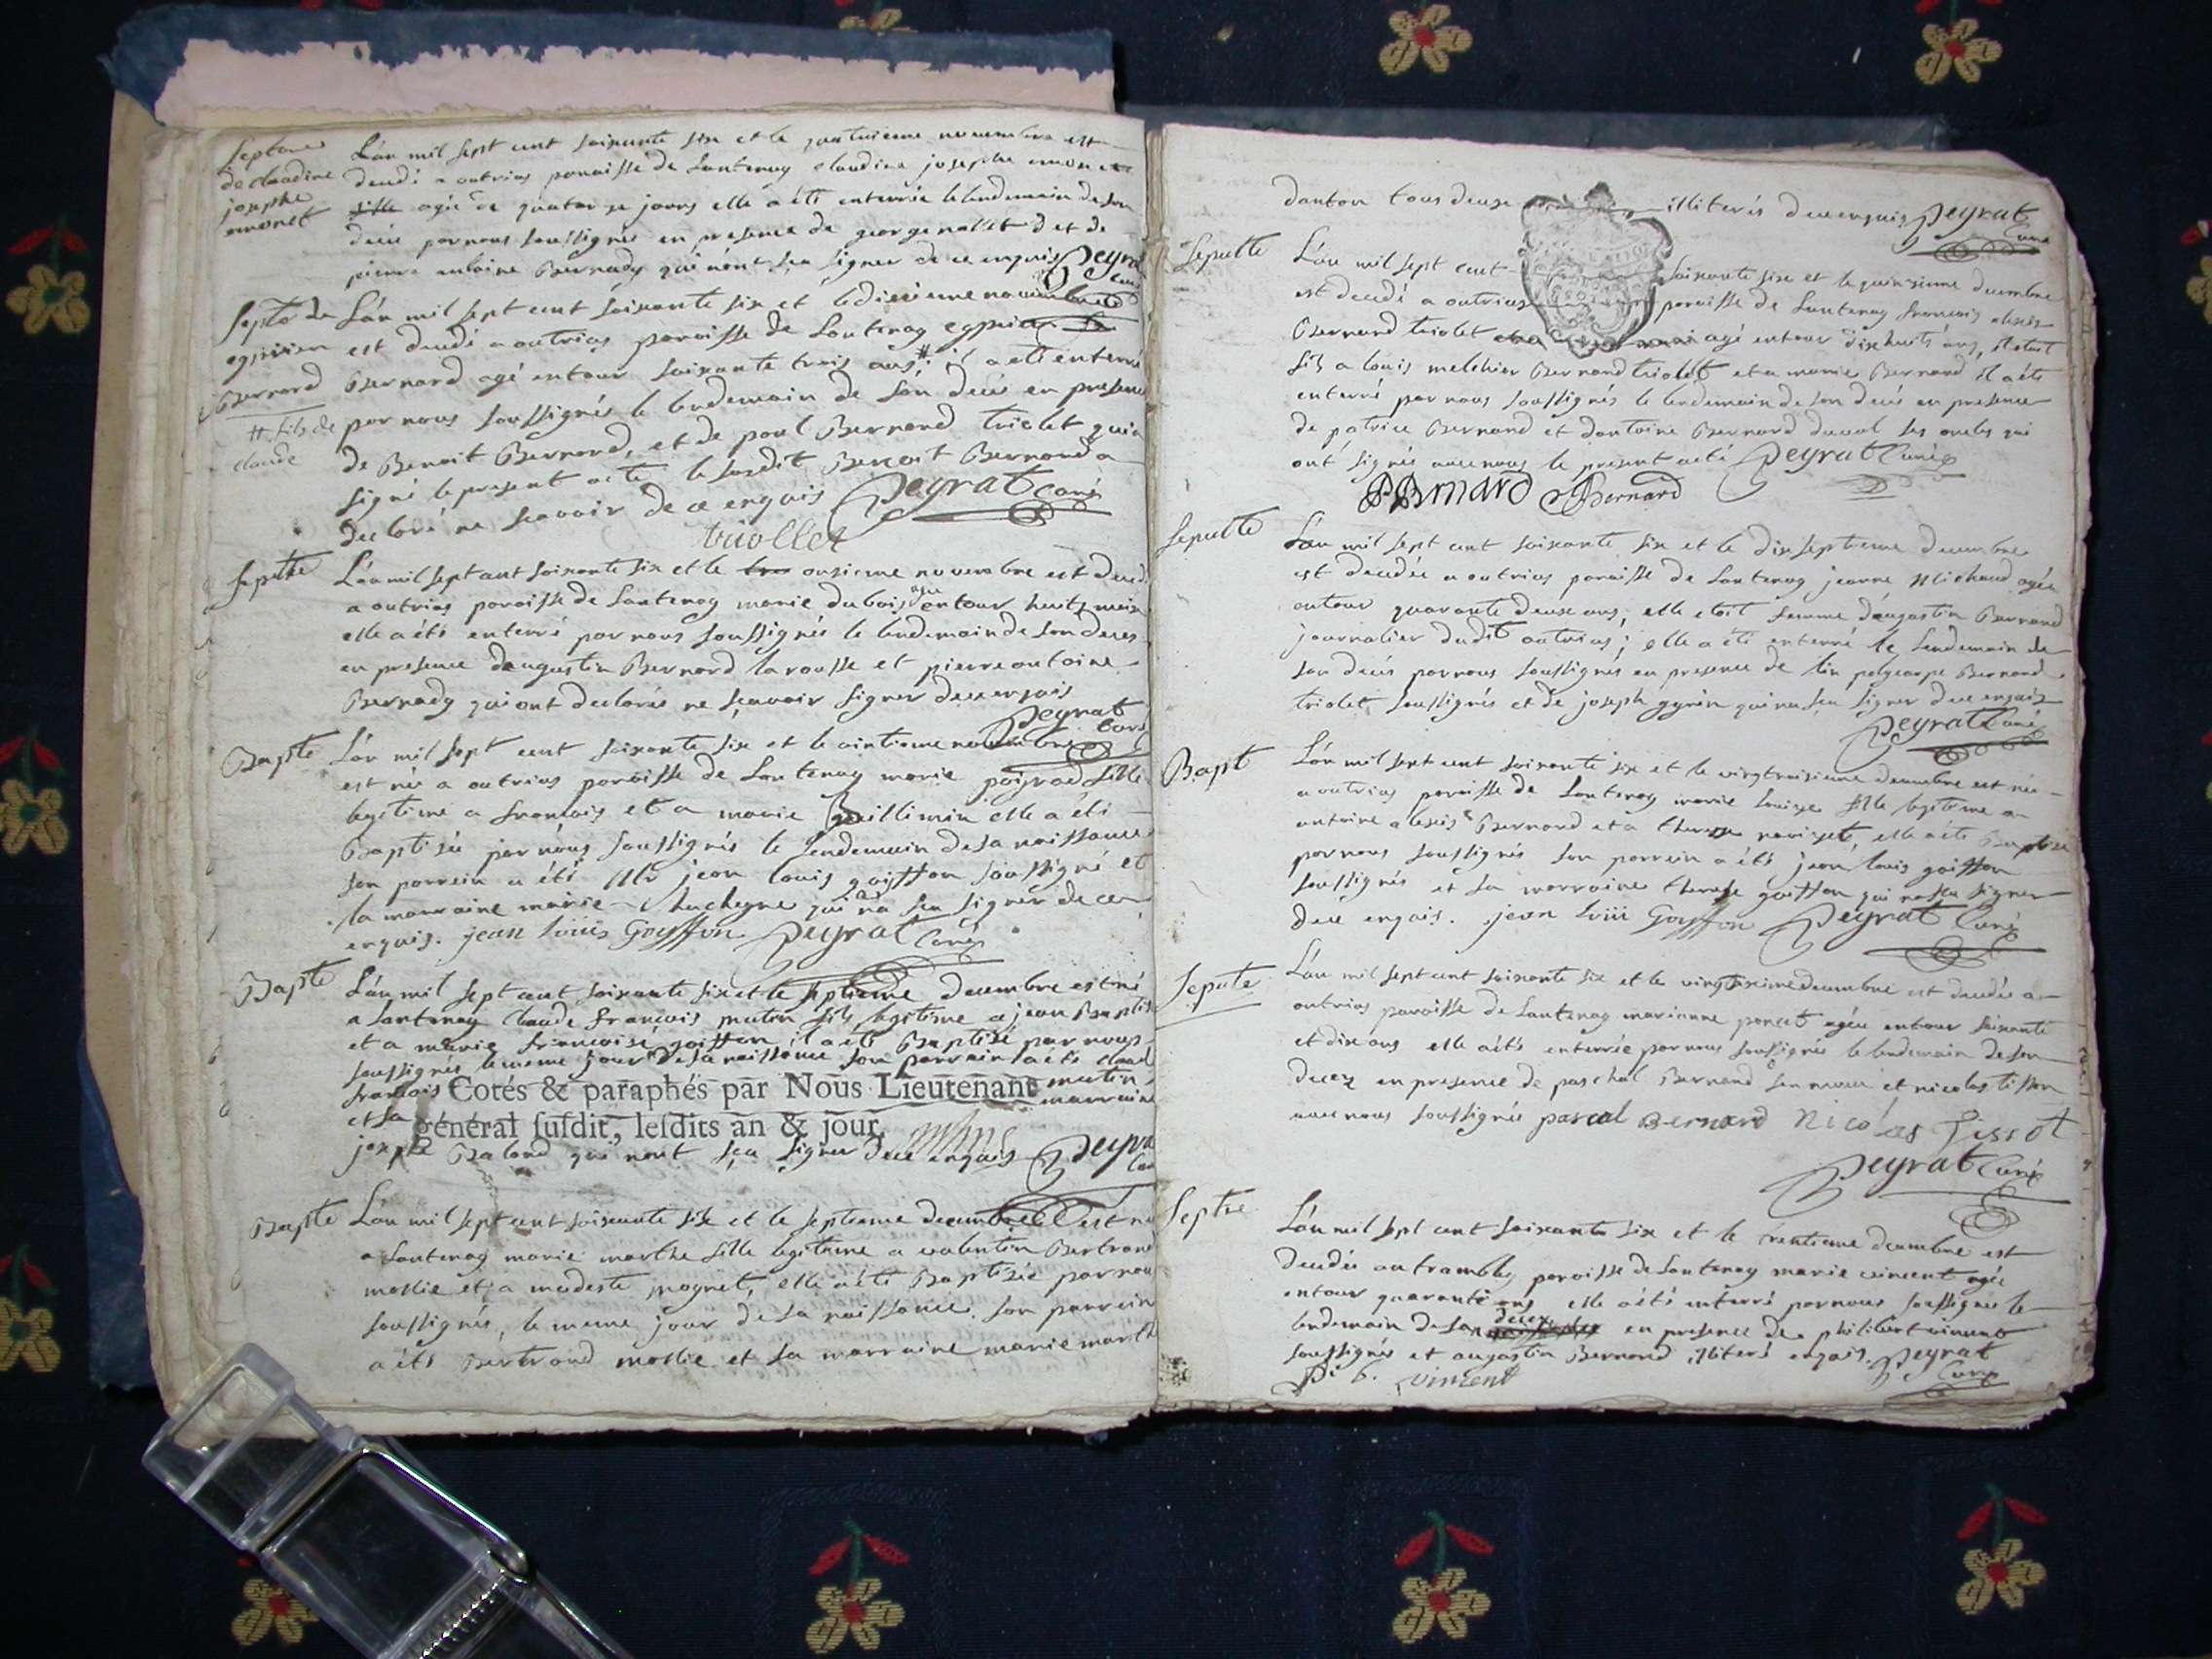 septure
de claudine
josephe
L'an mil sept cent soixante six et le quatrieme novembre est
decedé a outrias paroisse de Lantenay claudine josephe
agée de quatorze jours elle a été enterrée le lendemain de son
deces par nous soussignés en presence de george et de
pierre antoine Bernady qui n'ont sçu signer de ce enquis Peyrat
curé
septe de
Bernard
# fils de
claude
L'an mil sept cent soixante six et le dixieme novembre
est decedé a outrias paroisse de Lantenay
Bernard agé entour soixante trois ans # il a été enterré
par nous soussignés le lendemain de son deces en presence
de Benoit Bernard, et de paul Bernard triolet qui a
signé le present acte le susdit Benoit Bernard a
declaré ne scavoir de ce enquis Peyrat Curé
triollet
sepulte
L'an mil sept cent soixante six et le onsieme novembre est decedé
a outrias paroisse de Lantenay marie dubois agée entour huit mois
elle a été enterré par nous soussignés le lendemain de son deces
en presence daugustin Bernard larousse et pierre antoine
Bernady qui ont declarés ne sçavoir signer de ce enquis
Peyrat
Curé
Bapte
L'an mil sept cent soixante six et le vintieme novembre
est née a outrias paroisse de Lantenay marie poigrad fille
legitime a francois et a marie Guillimin elle a été
Baptisée par nous soussignés le lendemain de sa naissance
son parrein a été Mr jean louis goiffon soussigné et
la marraine marie qui n'a sçu signer de ce
enquis. jean louis Goyffon Peyrat Curé
Bapte
L'an mil sept cent soixante six et le septieme decembre est né
a Lantenay Claude françois mutin fils legitime a jean Baptiste
et a marie francoise goiffon il a été Baptisé par nous
soussignés le meme jour de sa naissance son parrain a été claude
francois mutin
Cotés & paraphés par Nous Lieutenant
et sa marraine
général ſuſdit, leſdits an & jour
josephe Baland qui n'ont sçu signer de ce enquis Peyrat
Curé
Bapte
L'an mil sept cent soixante six et le septieme decembre est née
a Lantenay marie marthe fille legitime a valentin Bertrand
mollie et a modeste mognet, elle a été Baptisée par nous
soussignés, le meme jour de sa naissance. son parrein
a été Bertrand mollie et sa marraine marie marthe
danton tous deux illiterés de ce enquis Peyrat
curé
Sepulte
L'an mil sept cent soixante six et le quinsieme decembre
est decedé a outrias paroisse de Lantenay francois alexis
Bernard triolet agé entour dixhuit ans, il etoit
fils a louis melchior Bernard triolet et a marie Bernard il a été
enterré par nous soussignés le lendemain de son deces en presence
de patrice Bernard et dantoine Bernard duval ses oncles qui
ont signés avec nous le present acte Peyrat Curé
PBernard ABernard
sepulte
L'an mil sept cent soixante six et le dixseptieme decembre
est decedée a outrias paroisse de Lantenay jeanne Michaud agée
entour quarante deux ans, elle etoit femme d'augustin Bernard
journalier dudit outrias; elle a été enterré le lendemain de
son deces par nous soussignés en presence de lin polycarpe Bernard
triolet soussignés et de joseph qui n'a sçu signer de ce enquis
Peyrat Curé
Bapt
L'an mil sept cent soixante six et le vingtroisieme decembre est née
a outrias paroisse de Lantenay marie louise fille legitime a
antoine alexis Bernard et a therese elle a été Baptisée
par nous soussignés son parrein a été jean louis goiffon
soussignés et sa marraine therese goiffon qui na sçu signer
de ce enquis. jean Louis Goyffon Peyrat Curé
Sepulte
L'an mil sept cent soixante six et le decembre est decedée a
outrias paroisse de Lantenay marianne poncet agée entour soixante
et dix ans elle a été enterrée par nous soussignés le lendemain de son
decez en presence de paschal Bernard son neveu et nicolas tissot
avec nous soussignés pascal Bernard Nicolas Tissot
Peyrat Curé
Septre
L'an mil sept cent soixante six et le trentieme decembre est
decedée au tremblay paroisse de Lantenay marie vincent agée
entour quarante ans elle a été enterré par nous soussignés le
lendemain de sa decez en presence de philibert vincent
soussignés et augustin Bernard illiteré enquis. Peyrat
Curé
Ph b. vincent